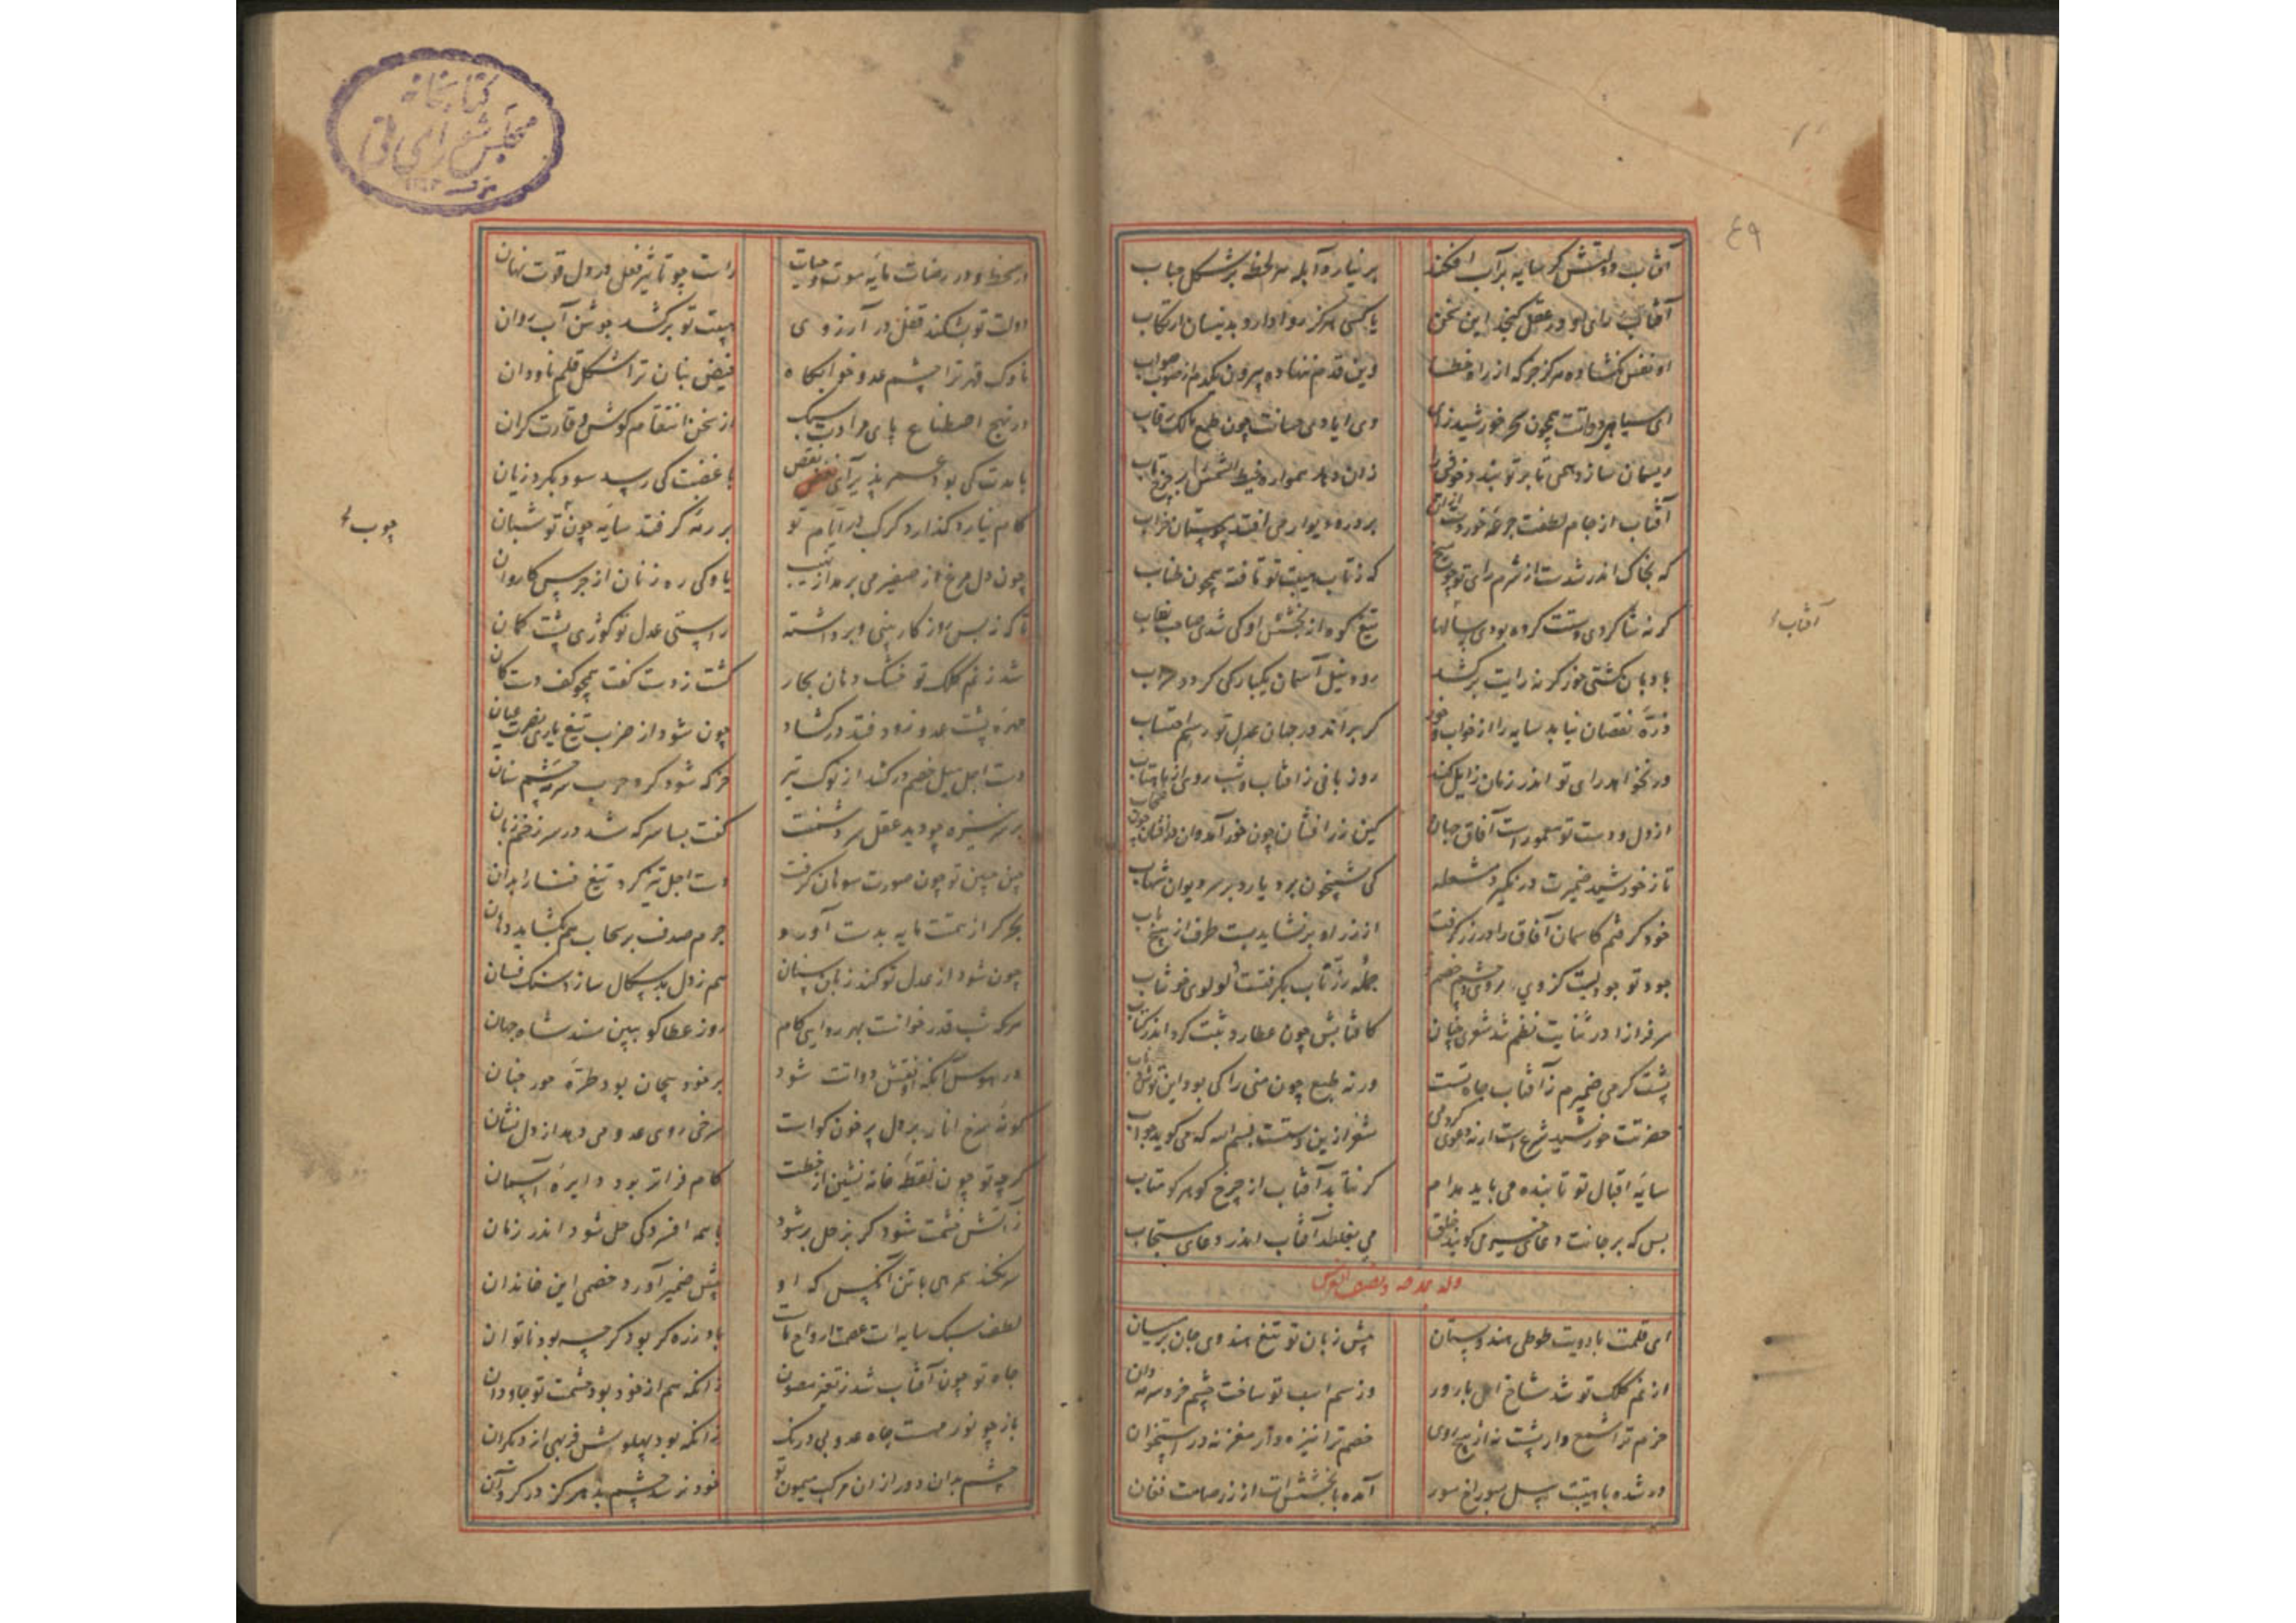 ۴۹
آفتاب دولتش کو سایه بر آب افکند
بر نیارد آبله هر لحظه بر شکل حباب
آفتاب رای او در عقل گنجد این سخن
با کسی هرگز روا دارد بدینسان ارتکاب
او نفس نگشاده هرگز جز که از راه خطا
وین قدم ننهاده بیرون یکدم از صوب صواب
ای سپاهی دولتت همچون سحر خورشید زای
وی ایادی حسانت چون طبع مالک رقاب
ریسمان سازد همی تا بر تو بندد خویش را
زان دهد همواره خیط الشمس را بر چرخ تاب
آفتاب از جام لطفت جرعه خوردست
بر در و دیوار می افتد چو مستان خراب
که بخاک اندر شدست از شرم رای تو چو
که ز تاب هیبت تو تافته همچون طناب
گر نه شاگردی دستت کرده بودی سالها
تیغ کوه از بخشش او کی شدی صاحب نصاب
بادبان کشتی خور گر نه رایت برکشد
رود نیل آسمان یکبارگی گردد سراب
ذره نقصان نیابد سایه را از خواب و خور
گر براند در جهان عدل تو رسم احتساب
ور نخواهد رای تو اندر زمان زایل کند
روز بافی ز آفتاب و شب روی از ماهتاب
از دل و دست تو معمورست آفاق جهان
کین زر افشان چون خور آمد وان در افشان چون سحاب
تا ز خورشید ضمیرت در نگیرد مشعله
کی شبیخون برد یارد بر سر دیوان شهاب
خود گرفتم کاسمان آفاق را در زر گرفت
از زر او بر نشاید بست طرف از هیچ باب
جود تو جودیست کز وی بر روی و چشم خصم
جمله زر ناب بگرفتست لولوی خوشاب
سرفرازا در ثنایت نظم شد شعری چنان
کافتابش چون عطارد ثبت کرد اندر کتاب
پشت گرمی ضمیرم ز آفتاب جاه تست
ورنه طبع چون منی را کی بود این توش و تاب
حضرتت خورشید شرع است ار نه دعوی کردمی
شعر ازین دستست بسم الله که می گوید جواب
سایه اقبال تو تابنده می باید مدام
گر نتابد آفتاب از چرخ گو هرگز متاب
بس که بر جانت دعای خیر می گویند خلق
می بغلطد آفتاب اندر دعای مستجاب
آفتاب
وله یمدحه و یصف القوس
ای قلمت بادویت طوطی هندوستان
پیش زبان تو تیغ هندوی جان بر میان
از نم کلک تو شد شاخ امل بارور
وز سم اسب تو ساخت چشم خرد سرمه دان
حزم ترا شمع وار پشت نه از هیچ روی
خصم ترا نیزه وار مغز نه در استخوان
در شده با هیبتت پیل بسوراخ مور
آمده با بخششت از زر صامت فغان
کتابخانه
مجلس شورای ملی
در سخط و در رضات مایه موت و حیات
راست چو تاثیر فعل در دل قوت نهان
دولت تو بشکند قفل در آرزوی
هیبت تو برکشد جوشن آب روان
ناوک قهر ترا چشم عدو خوابگاه
فیض بنان ترا شکل قلم ناودان
در نهج اصطناع پای مرادت سبک
از سخن انتقام گوش وقارت گران
با مدت کی بود عمر پذیرای نقص
با غضبت کی رسد سود بگرد زیان
کام نیارد گذارد گرگ در ایام تو
بر رمه گر افتد سایه چون تو شبان
چون دل مرغ از صفیر می برمد از نهیب
یاوگی ره زنان از جرس کاروان
تا که ز بس روزگار پنبی و برداشته
راستی عدل تو کوژی پشت کمان
شد ز نم کلک تو خشک دهان بحار
گشت ز دست کفت همچو کف دست کان
مهره پشت عدو زود فتد در گشاد
چون شود از ضرب تیغ یاری نصرت عیان
دست اجل میل خصم درکشد از نوک تیر
هر که شود گرد حرب سرمه چشم سنان
بر سر نیزه چو دید عقل سر دشمنت
گفت بسا سر که شد در سر زخم زبان
چین جبین تو چون صورت سوهان گرفت
دست اجل تیز کرد تیغ فنا را بدان
بحر گر از همتت مایه بدست آورد
جرم صدف بر سحاب هم نگشاید دهان
چون شود از عدل تو کند زبان سنان
هم ز دل بدسگال سازد سنگ فسان
هر که شب قدر خواست بهر روایی کام
روز عطا گو ببین مسند شاه جهان
در هوس آنکه او نقش دواتت شود
بر خود پیچان بود طره حور جنان
گونه سرخ انار بر دل پر خون گواست
سرخی روی عدو می دهد از دل نشان
گرچه تو چون نقطه خانه نشین از خطت
گام فراتر بود دایره آسمان
ز آتش خشمت شود گر بزحل بر شود
با همه افسردگی حل شود اندر زمان
سر نکند همرهی با تن آنکس که او
پیش ضمیر آورد خصمی این خاندان
لطف سبک سایه ات عمت ارواح مات
باد زره گر بود گرچه بود ناتوان
جاه تو چون آفتاب شد ز تغیر مصون
زانکه هم از خود بود حشمت تو جاودان
باز چو نور مهست جاه عدو بی درنگ
زانکه بود پهلوش فربهی از دیگران
چشم بدان دور از ان مرکب میمون تو
خود نرسد چشم بد هرگز در گرد آن
چوب